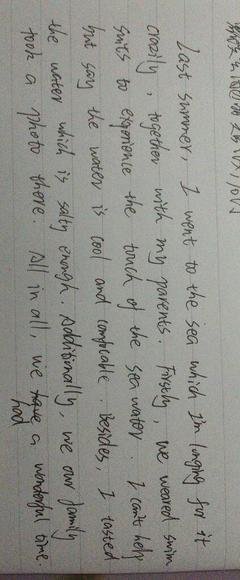 Last summer, I went to the sea which I'm longing for it
crazily, together with my parents. Firstly, we weared swim
suits to experience the touch of the sea water. I can't help
but say the water is cool and comfortable. Besides, I tasted
the water which is salty enough. Additionally, we our family
took a photo there. All in all, we have a wonderful time.
had